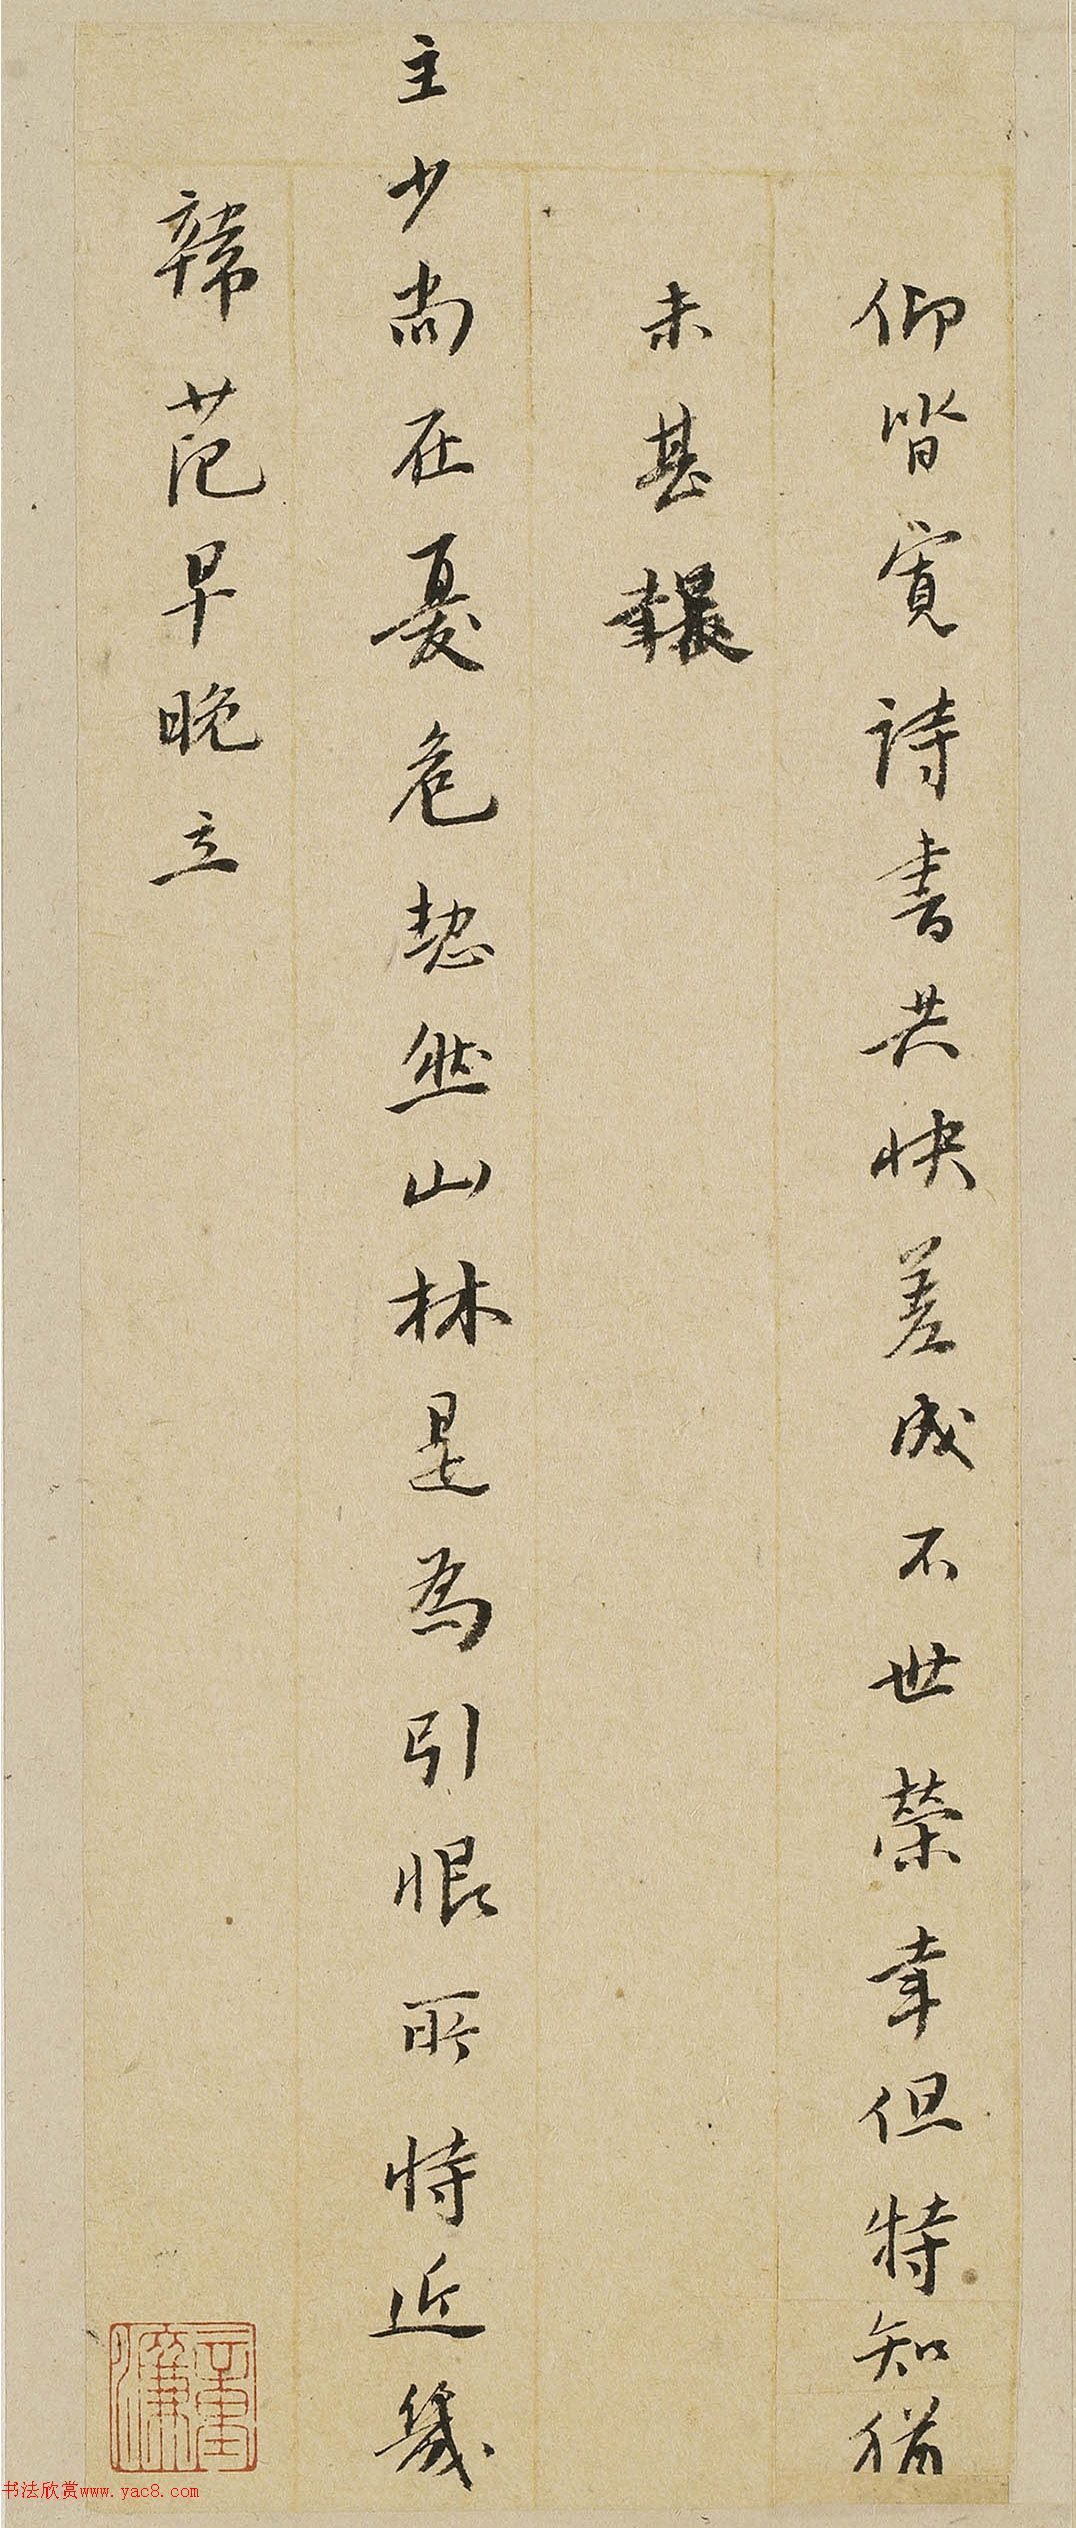 仰皆寬詩書共快差成不世榮幸但特知猶
未甚報
主少尚在憂危愁然山林是為引恨所恃近幾
韓范早晚立
书法欣赏www.yac8.com